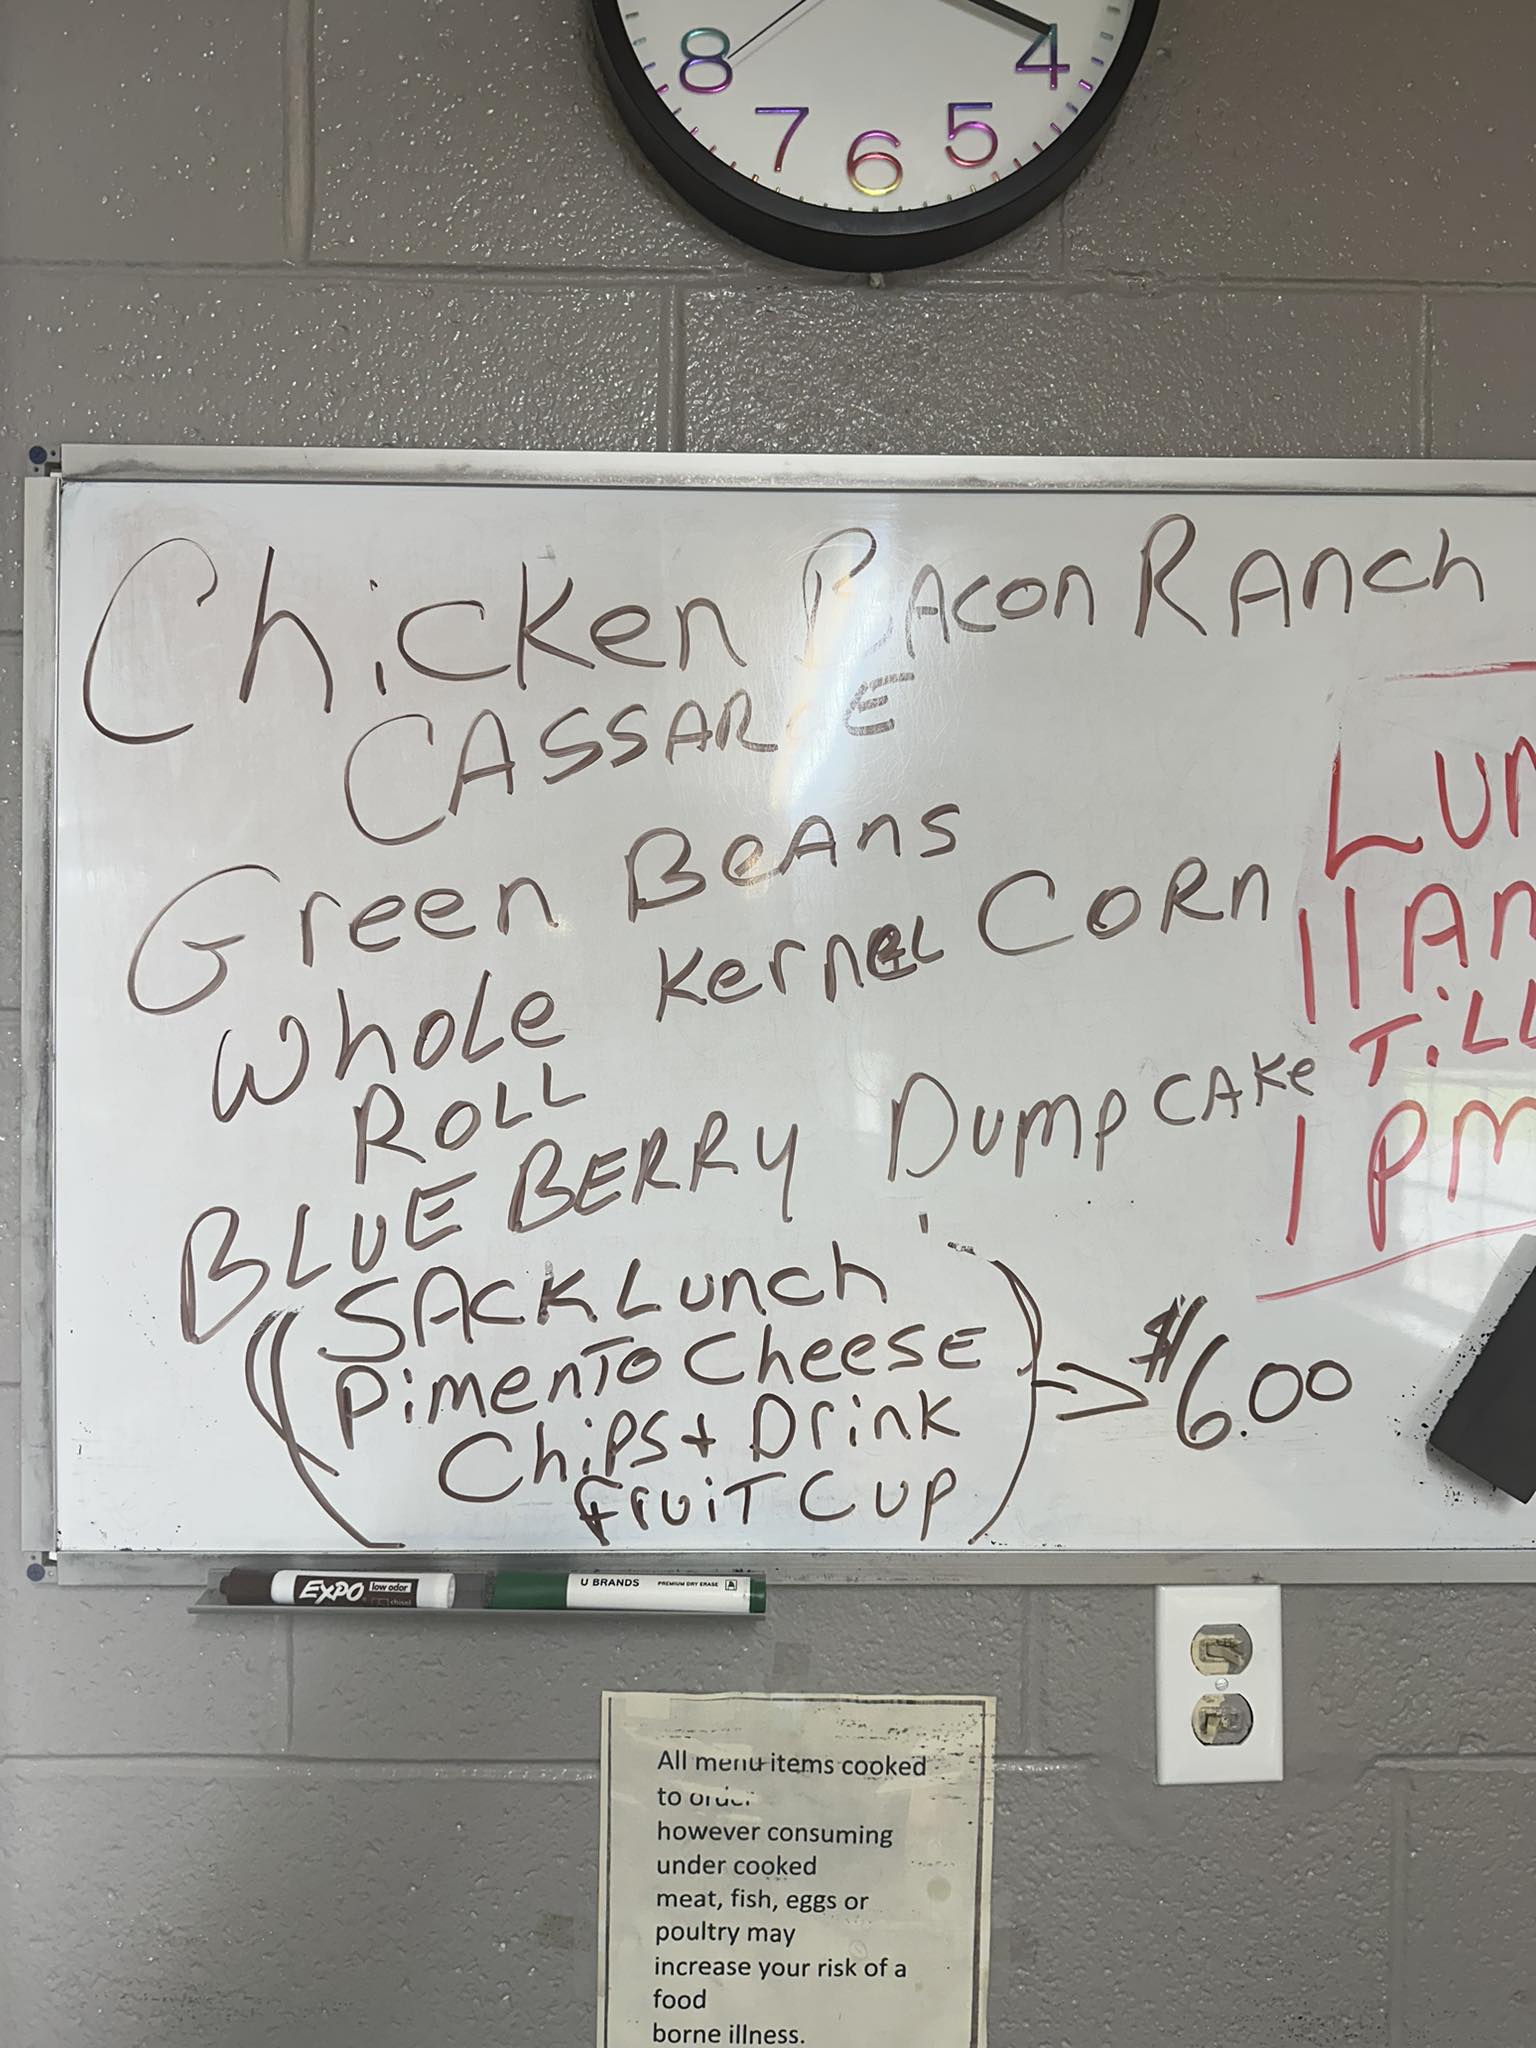 8
4
7
5
6
Chicken BACON RANCh
CASSAR E
Green BeAns
Whole Kernel CORn
ROLL
BLUE BERRY DumpCAKe
SACK Lunch
PimenTO CheeSE
ChiPS + Drink
FruiT Cup
$6.00
LUN
11 AM
TiLL
1 PM
EXPO low odor
chisel
U BRANDS PREMIUM DRY ERASE
All menu items cooked
to
however consuming
under cooked
meat, fish, eggs or
poultry may
increase your risk of a
food
borne illness.